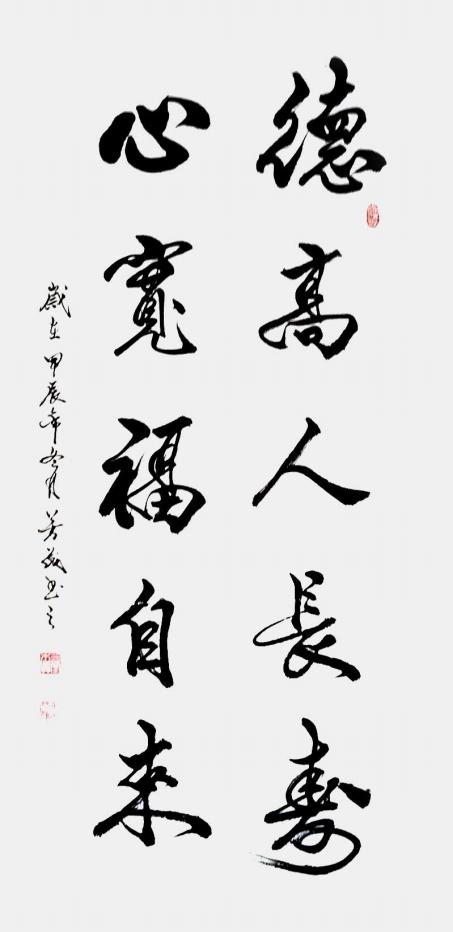 德高人長壽
心寬福自來
歲在甲辰年冬月芳茂書之